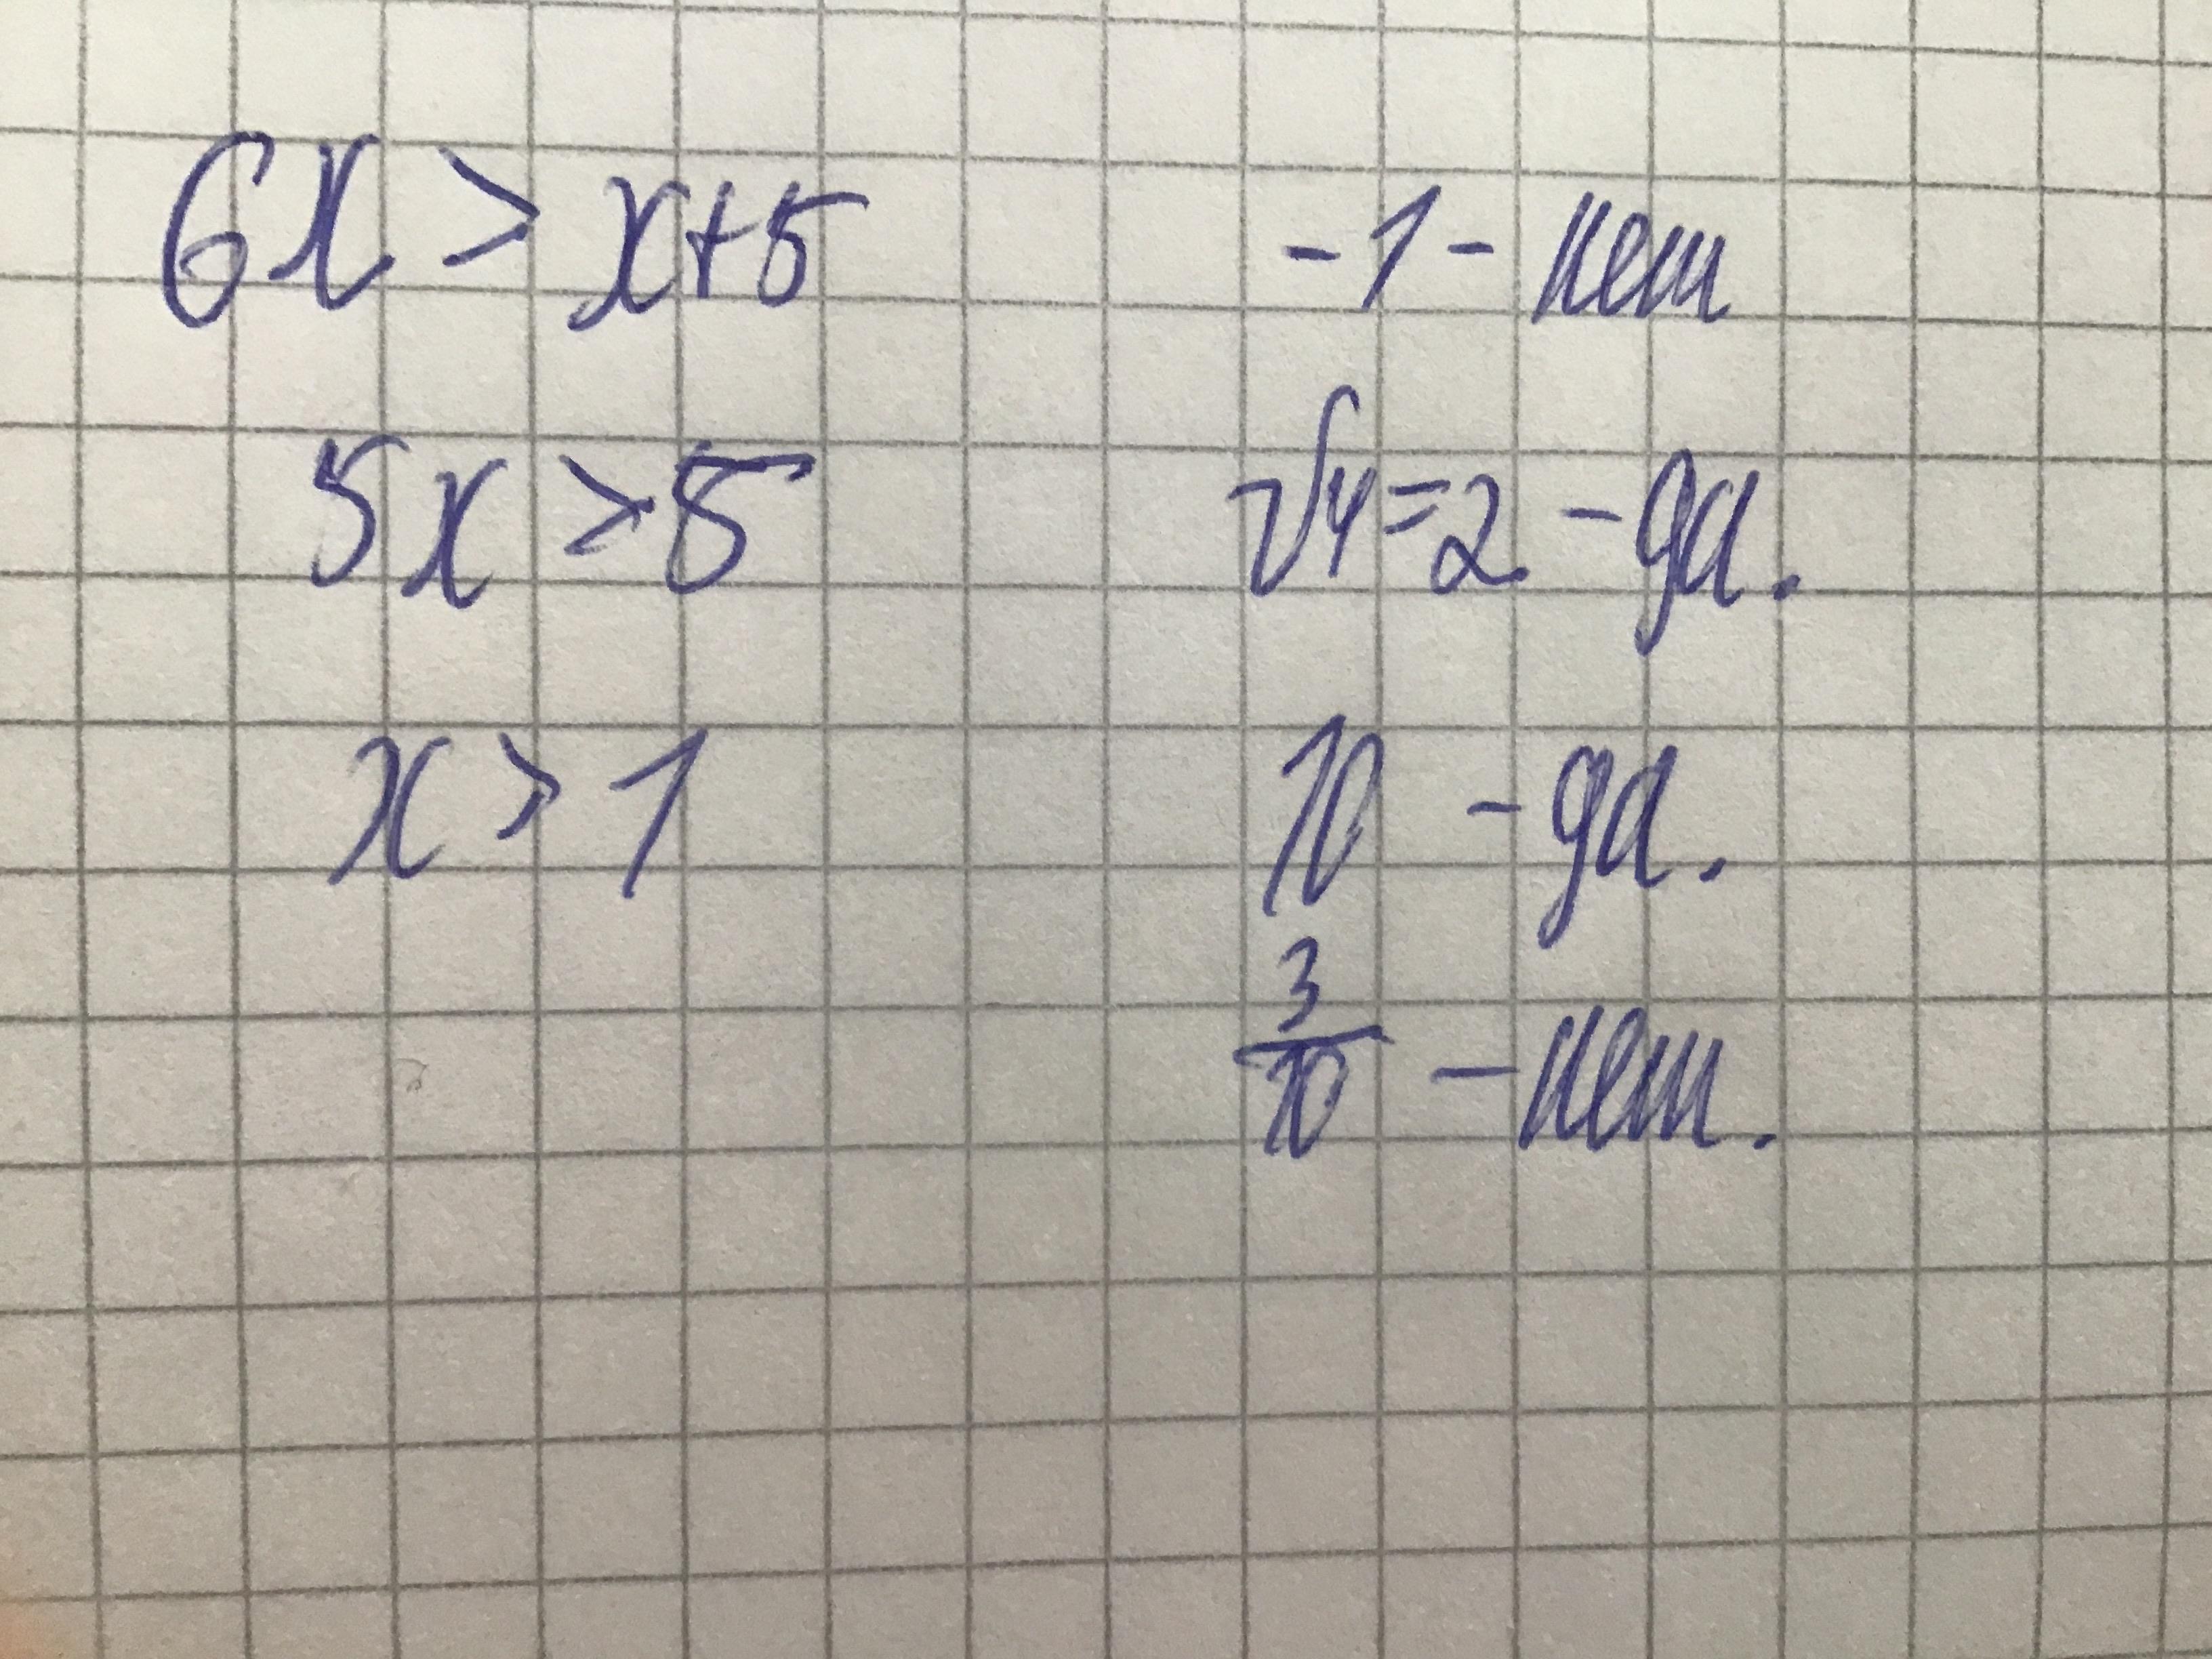 6x > x+5
5x > 5
x > 1
-1 - нет
√4 = 2 - да.
10 - да.
3/10 - нет.